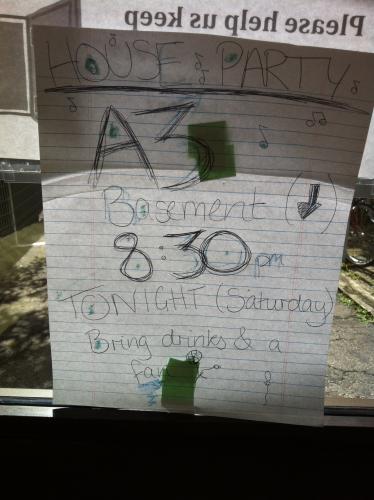 Please help us keep
HOUSE PARTY
A3
Basement (↓)
8:30pm
TONIGHT (Saturday)
Bring drinks & a